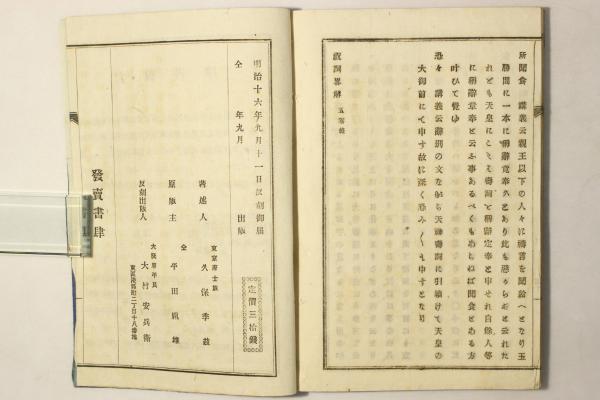 所聞食 講義云親王以下の人々に祷言を聞給へとなり玉
勝間に一本に稱辭竟奉とあり此も惡からずと云れた
れども天皇にこそ壽詞と稱辭定奉と申せ自餘人等
に稱辭竟奉と云ふ事あるべくもあらねば聞食とある方
叶ひて覺ゆ
恐々 講義云辭別の文なから天神壽詞に引續けて天皇の
大御前にて申す故に深く恐み〳〵も申すとなり
壽詞畧解
明治十六年九月十一日反刻御届
仝 年九月 出版
定價三拾錢
東京府士族
著述人 久保季茲
原版主 仝 平田胤雄
反刻出版人 大阪府平民 大村安兵衛
東區
町二丁目十八番地
發賣書肆